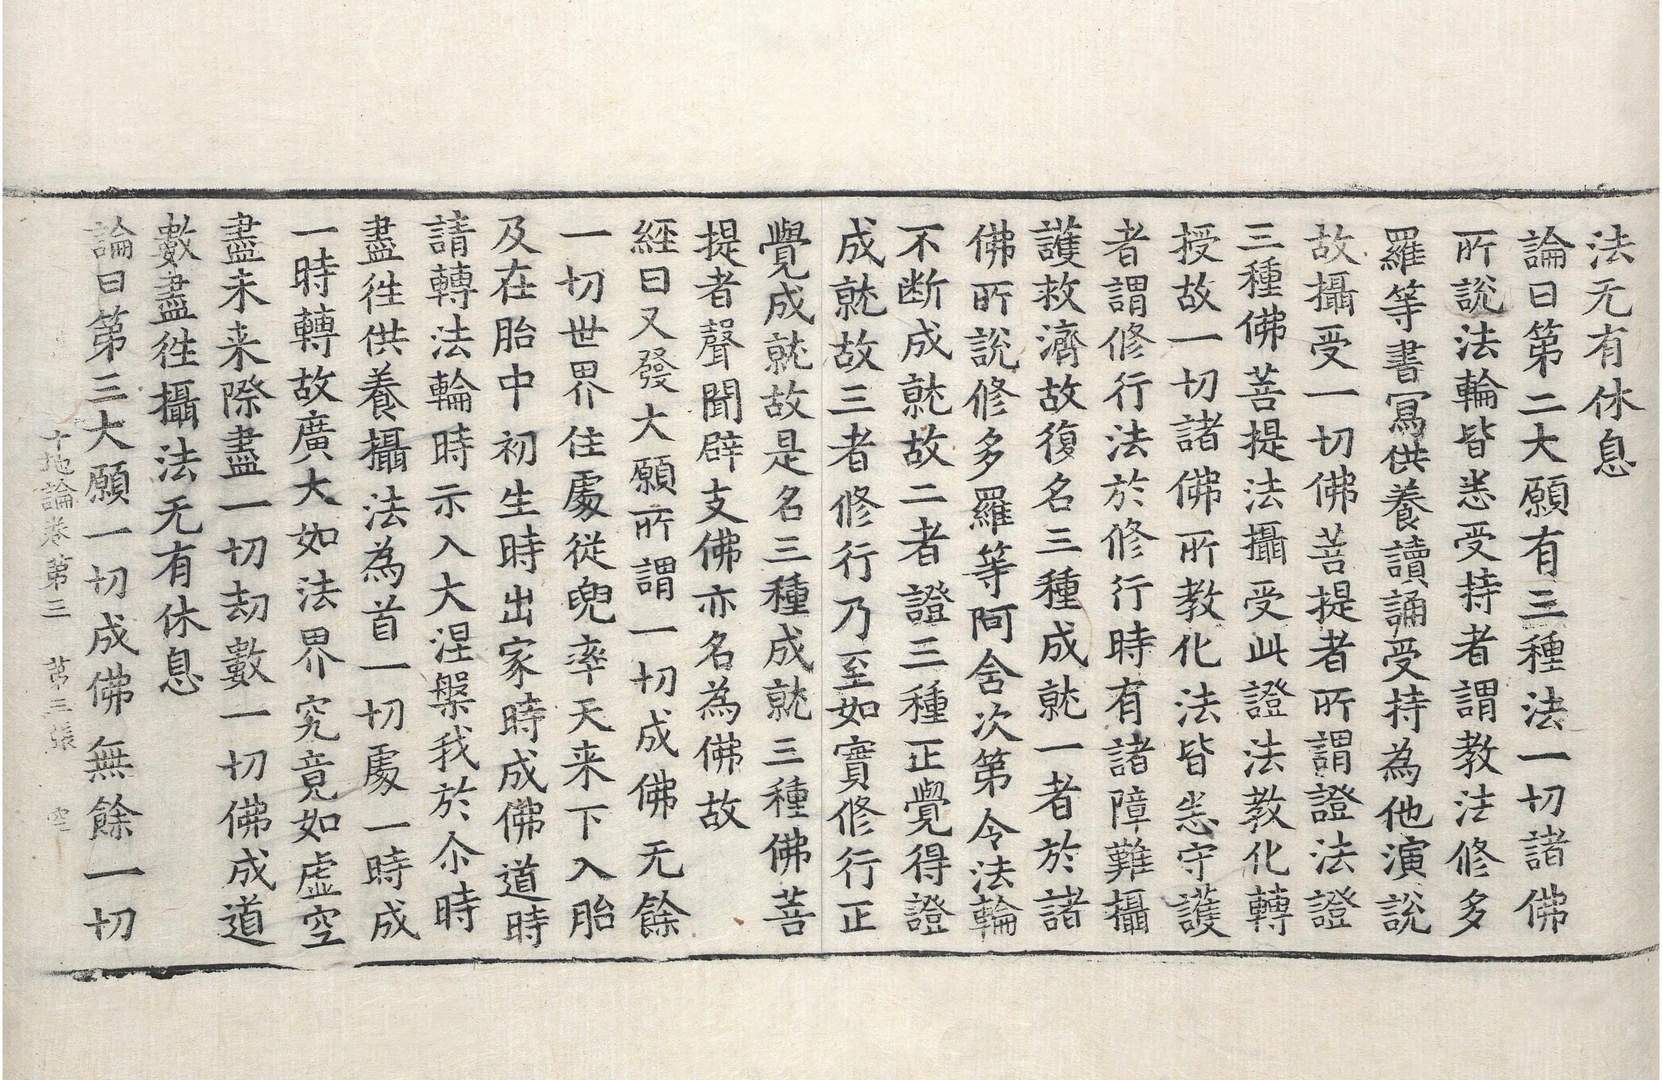 法无有休息
論曰第二大願有三種法一切諸佛
所說法輪皆悉受持者謂教法修多
羅等書寫供養讀誦受持為他演說
故攝受一切佛菩提者所謂證法證
三種佛菩提法攝受此證法教化轉
授故一切諸佛所教化法皆悉守護
者謂修行法於修行時有諸障難攝
護救濟故復名三種成就一者於諸
佛所說修多羅等阿舍次第令法輪
不断成就故二者證三種正覺得證
成就故三者修行乃至如實修行正
覺成就故是名三種成就三種佛菩
提者聲聞辟支佛亦名為佛故
經曰又發大願所謂一切成佛无餘
一切世界住處從兜率天来下入胎
及在胎中初生時出家時成佛道時
請轉法輪時示入大涅槃我於尒時
盡徃供養攝法為首一切處一時成
一時轉故廣大如法界究竟如虛空
盡未来際盡一切劫數一切佛成道
數盡徃攝法无有休息
論曰第三大願一切成佛無餘一切
十地論卷第三 第三張 空